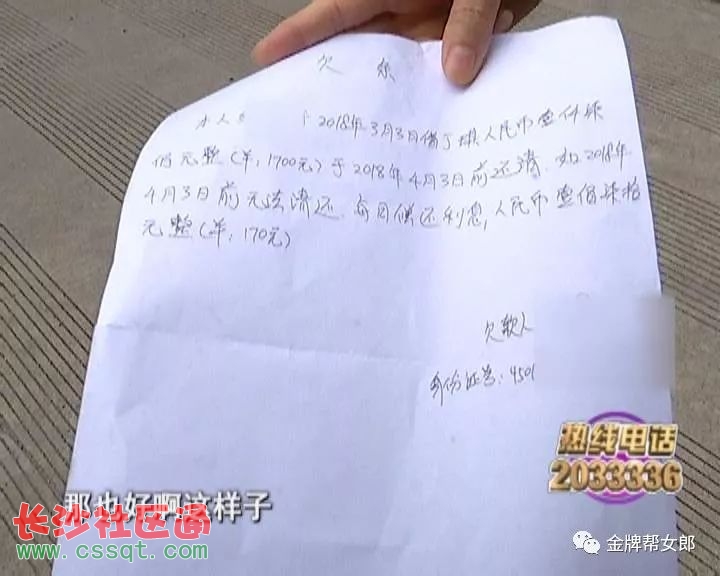 欠条
本人 2018年3月3日借丁琪人民币壹仟柒
佰元整(羊:1700元)于2018年4月3日前还清.如2018年
4月3日前无法清还.每月偿还利息,人民币壹佰柒拾
元整(羊:170元)
欠款人
身份证号:4501
热线电话
2033336
那也好啊这样子
长沙社区通
www.cssqt.com
金牌帮女郎